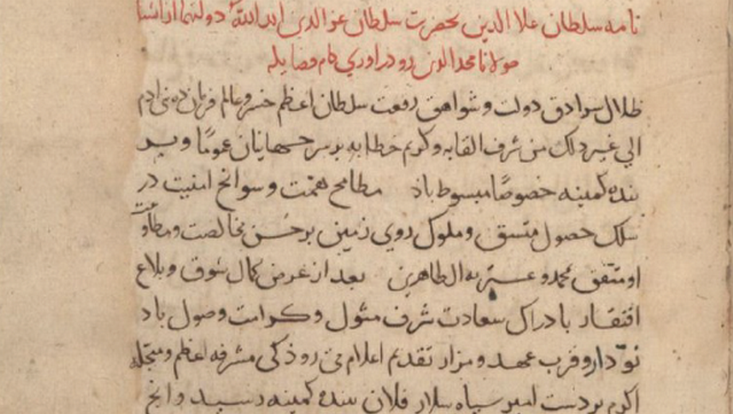 نامه سلطان علا الدین بحضرت سلطان عز الدین ابد الله دولتهما از انشا
مولانا مجد الدین
ظلال سرادق دولت و شواهق رفعت سلطان اعظم خسرو عالم فرمان ده بنی ادم
الی غیر ذلک من شرف القابه و کریم خطابه بر سر جهانیان عموما و بر
بنده کمینه خصوصا مبسوط باذ مطامح همت و سوانح امنیت در
سلک حصول متسق و ملوک روی زمین بر حسن مخالصت و مطاوعت
او متفق بمحمد و عترته الطاهرین بعد از عرض کمال شوق و بلاغ
افتقار بادراک سعادت شرف مثول و کرامت وصول باد
و قرب عهد و مزار تقدیم اعلام می روذ کی مشرفه اعظم و
اکرم بر دست امیر سپاه سلار فلان بنده کمینه رسید